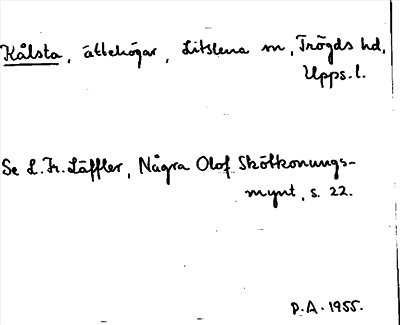 Kålsta, ättehögar, Litslena sn, Trögds hd,
Upps. l.
Se L. Fr. Läffler, Några Olof Skötkonungs-
mynt, s. 22.
P.A. 1955.